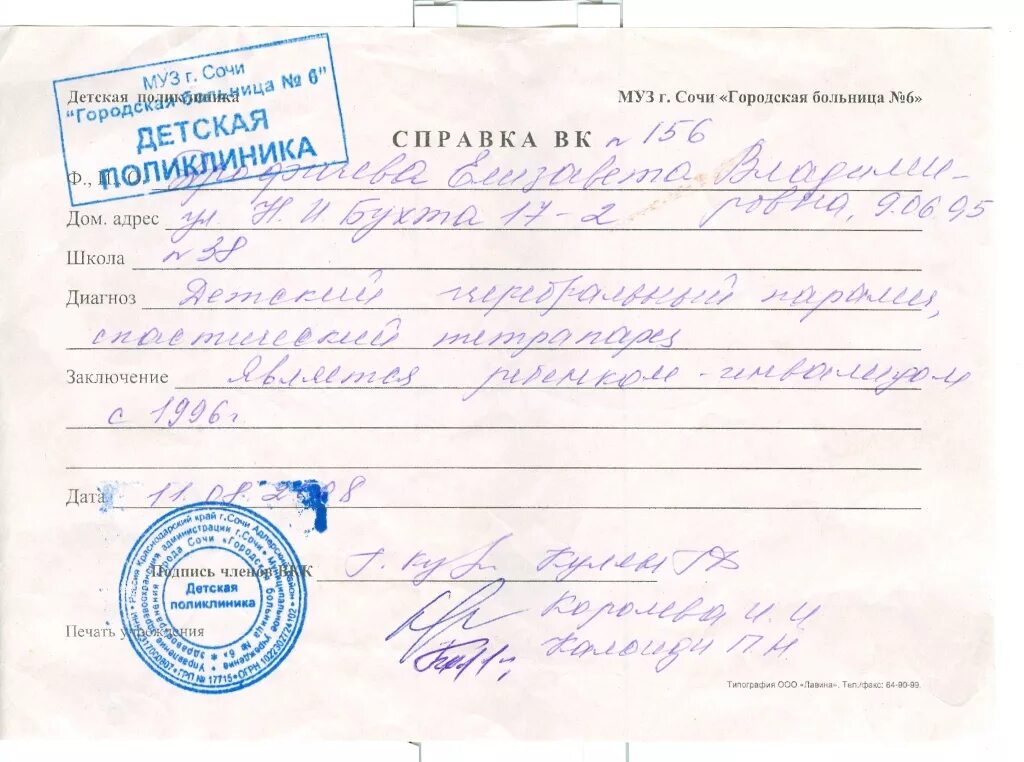 МУЗ г. Сочи
"Городская больница № 6"
ДЕТСКАЯ
ПОЛИКЛИНИКА
Детская поликлиника
МУЗ г. Сочи «Городская больница №6»
СПРАВКА ВК № 156
Ф., И., О. Елизавета Владими-
ровна, 9.06.95
Дом. адрес ул. Н. И. Бухта 17-2
Школа № 38
Диагноз Детский церебральный паралич,
спастический тетрапарез
Заключение Является ребенком-инвалидом
с 1996г.
Дата 11.08.2008
Подпись членов ВКК
Королева И. И
Печать учреждения
Калоиди П Н
Детская
поликлиника
Типография ООО «Лавина». Тел./факс: 64-90-99.